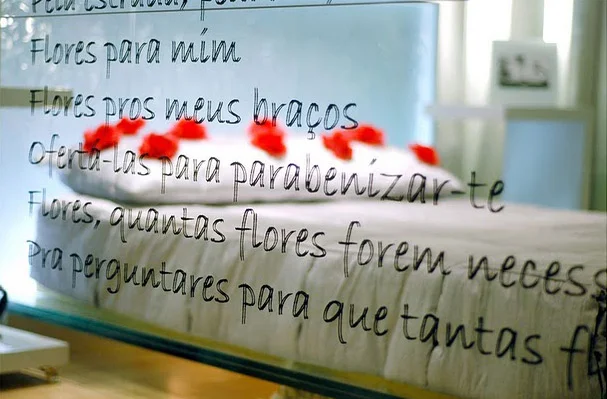 Pela estrada,
Flores para mim
Flores pros meus braços
Ofertá-las para parabenizar-te
Flores, quantas flores forem necess
Pra perguntares para que tantas fl